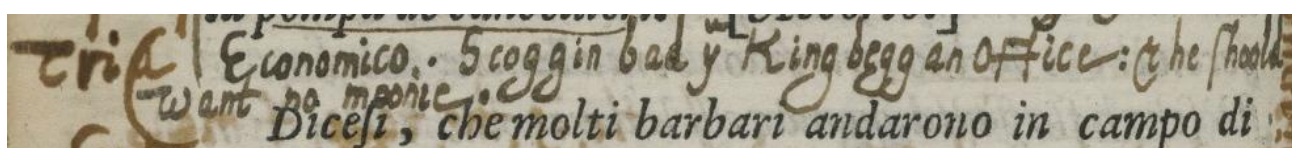 Tria Economico. Scoggin bad yͤ King begg an Office: & he shoold
want no monie.
Dicesi, che molti barbari andarono in campo di